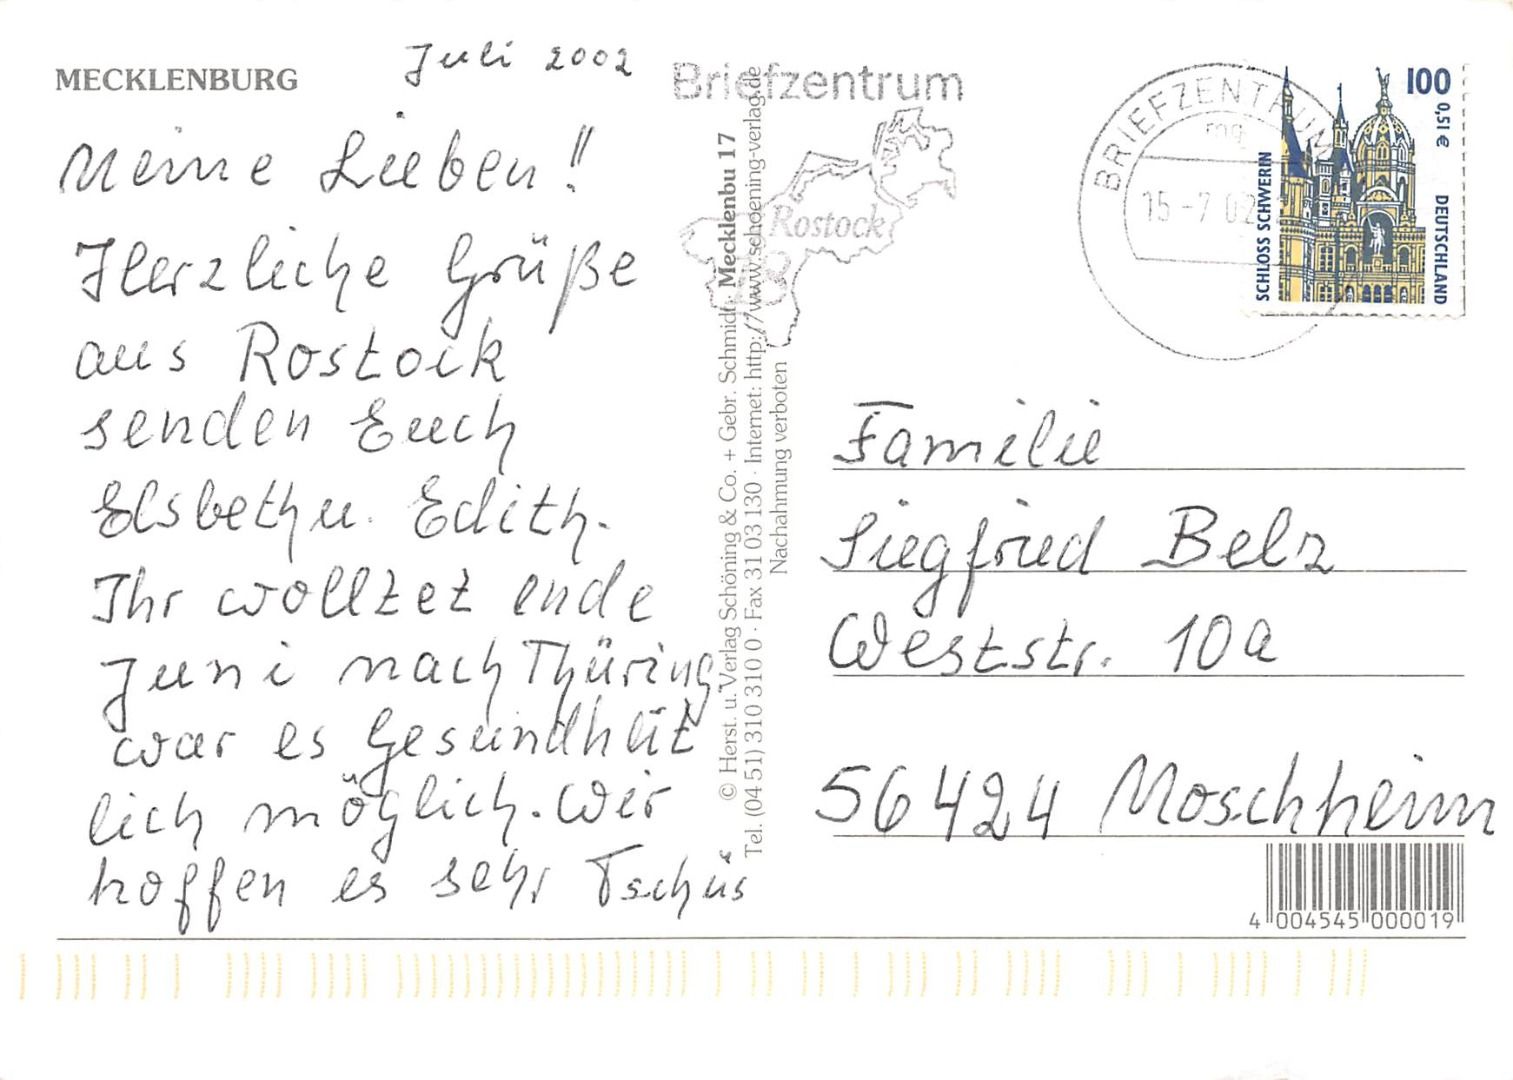 MECKLENBURG
Juli 2002
Meine Lieben!
Herzliche Grüße
aus Rostock
senden Euch
Elsbeth u. Edith.
Ihr wolltet ende
Juni nach Thüring
war es Gesundheit
lich möglich. Wir
hoffen es sehr Tschüs
© Herst. u. Verlag Schöning & Co. + Gebr. Schmidt · Mecklenbu 17
Tel. (04 51) 310 310 0 · Fax 31 03 130 · Internet: http://www.schoening-verlag.de
Nachahmung verboten
Briefzentrum
Rostock
BRIEFZENTRUM
mg
15-7 02
100
0,51 €
SCHLOSS SCHWERIN
DEUTSCHLAND
Familie
Siegfried Belz
Weststr. 10a
56424 Moschheim
4 004545 000019